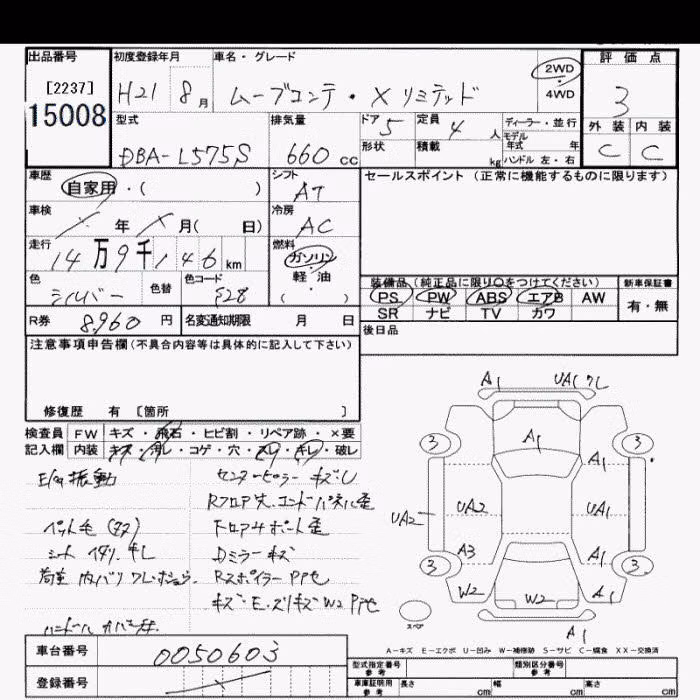 出品番号 初度登録年月 車名・グレード 評価点
[2237] H21 8月 ムーブコンテ・Xリミテッド 2WD・4WD 3
15008 型式 排気量 ドア 5 定員 4人 ディーラー・並行 外装 内装
モデル年式 年
DBA-L575S 660cc 形状 積載 kg ハンドル 左・右 C C
車歴 シフト セールスポイント(正常に機能するものに限ります)
自家用・( ) AT
車検 冷房
年 月( 日) AC
走行 燃料
14万9千146km ガソリン
色 色替 色コード 軽・油 装備品(純正品に限り○をつけてください) 新車保証書
シルバー S28 ( ) PS PW ABS エアB AW 有・無
SR ナビ TV カワ
R券 8,960円 名変通知期限 月 日 後日品
注意事項申告欄(不具合内容等は具体的に記入して下さい)
修復歴 有 [箇所 ]
検査員 FW キズ・飛石・ヒビ割・リペア跡・×要
記入欄 内装 キズ・汚レ・コゲ・穴・スレ・キレ・破レ
E/g振動 センターピラーキズ
Rフロア大.エンドパネル歪
ペット毛 フロアサポート歪
シート Dミラーキズ
荷室 内バリ Rスポイラー
キズ・E
A1 UA1
3 A1 3
A1
UA2 UA2 UA1
A3 A1
3 3
W2 W2 A1
スペア A1
A-キズ E-エクボ U-凹み W-補修跡 S-サビ C-腐食 XX-交換済
車台番号 0050603 型式指定番号 参考 類別区分番号 参考
登録番号 車庫証明用 参考 長さ cm 幅 cm 高さ cm